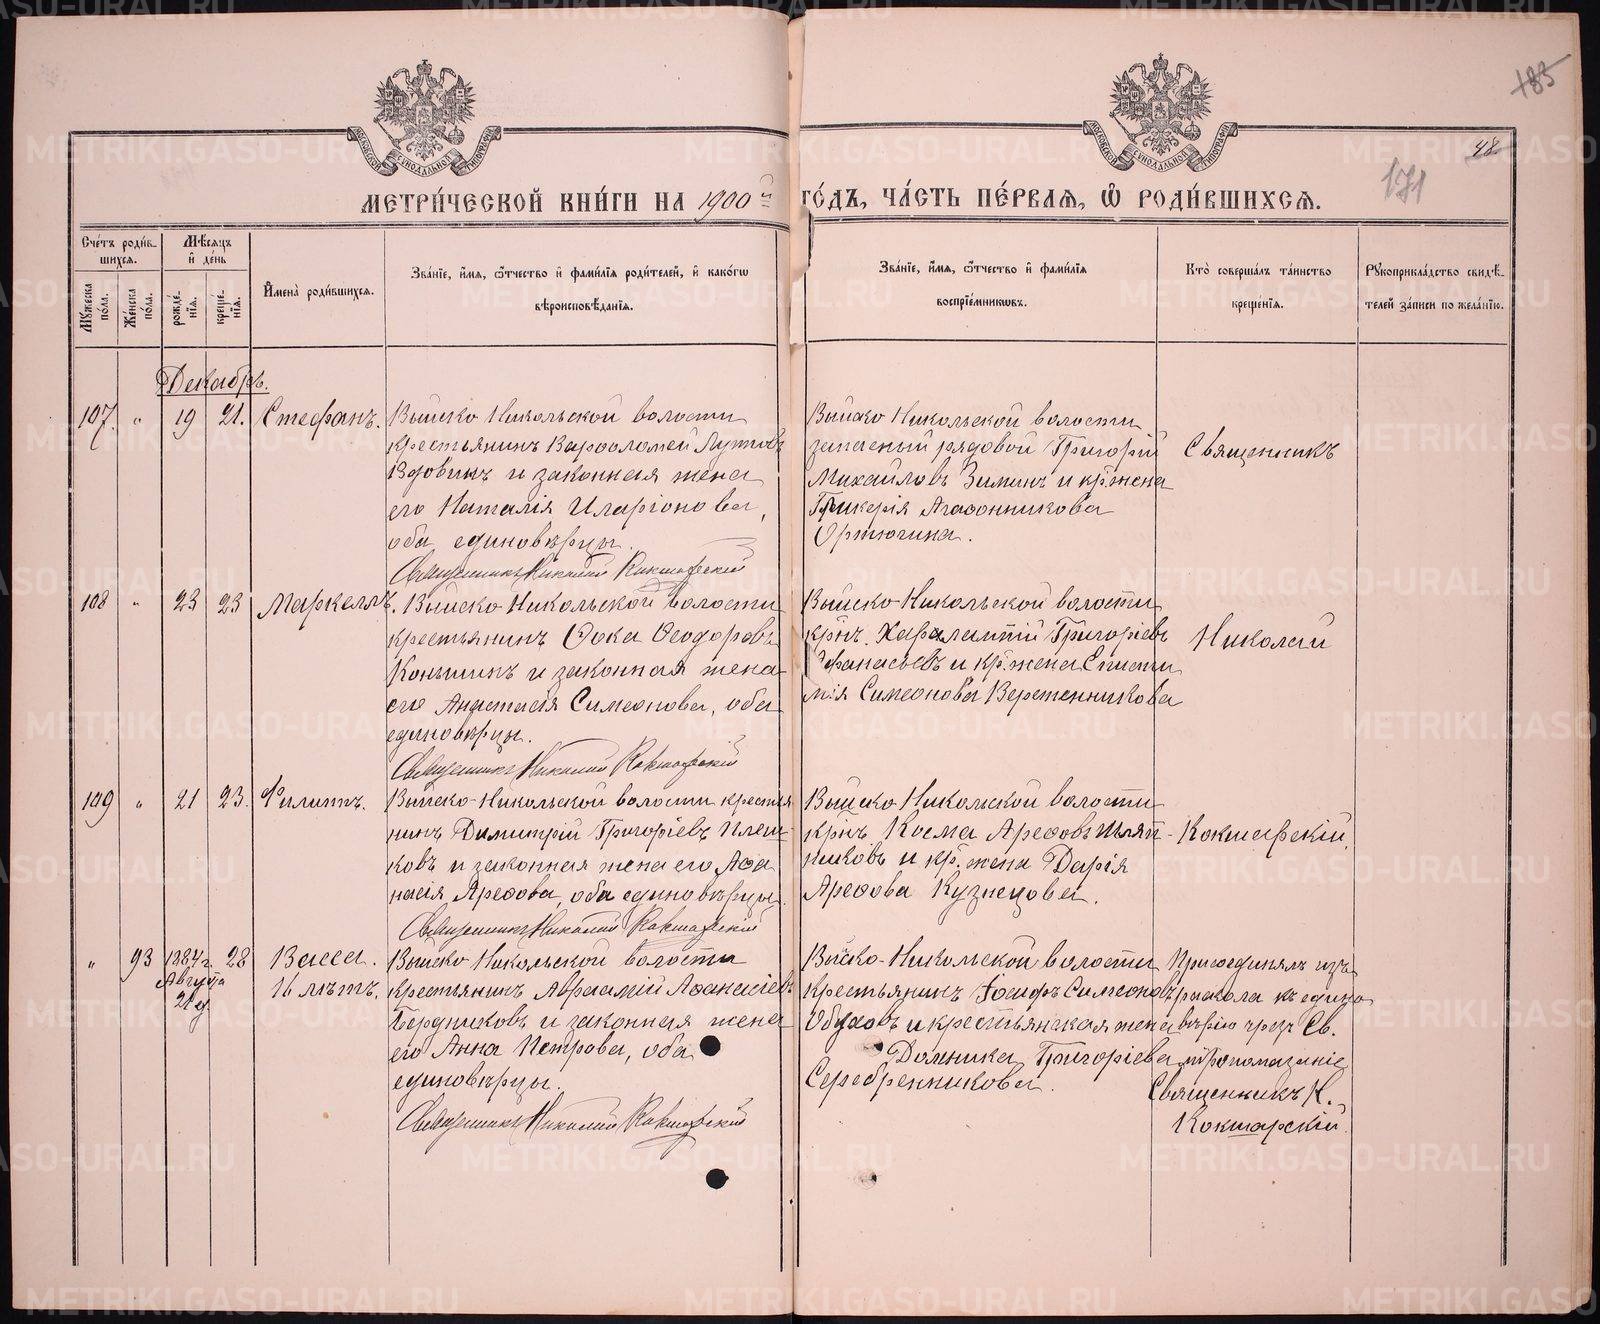 183
48
171
МЕТРИ́ЧЕСКОЙ КНИ́ГИ НА 1900й ГО́ДЪ, ЧА́СТЬ ПЕ́РВАѦ, Ѡ҆ РОДИ́ВШИХСѦ.
Сче́тъ роди́вшихсѧ.
Мꙋ́жеска по́ла.
Же́нска по́ла.
Мѣ́сѧцъ и҆ де́нь
рожде́нїѧ.
креще́нїѧ.
И҆мена̀ роди́вшихсѧ.
Зва́нїе, и҆́мѧ, ѻ҆́тчество и҆ фами́лїѧ роди́телей, и҆ како́гѡ
вѣроисповѣ́данїѧ.
Зва́нїе, и҆́мѧ, ѻ҆́тчество и҆ фами́лїѧ
воспрїе́мникѡвъ.
Кто̀ соверша́лъ та́инство
креще́нїѧ.
Рꙋкоприкла́дство свидѣ́телей за́писи по жела́нїю.
Декабрь.
107. " 19 21. Стефанъ.
Выйско Никольской волости
крестьянинъ Варѳоломей Лутовъ
Вдовинъ и законная жена
его Наталія Иларіонова,
оба единовѣрцы.
Священникъ Николай Кокшарскій
Выйско Никольской волости
запасный рядовой Григорій
Михайловъ Зиминъ и кр. жена
Гликерія Агаѳонникова
Ортюгина.
Священникъ
108 " 23 23 Маркеллъ.
Выйско Никольской волости
крестьянинъ Ѳока Ѳеодоровъ
Коньшинъ и законная жена
его Анастасія Симеонова, оба
единовѣрцы.
Священникъ Николай Кокшарскій
Выйско Никольской волости
крнъ. Харалампій Григоріевъ
Афанасьевъ и кр. жена Епистимія Симеонова Веретенникова
Николай
109 " 21 23. Филиппъ.
Выйско-Никольской волости крестьянинъ Димитрій Григоріевъ Плешковъ и законная жена его Аѳанасія Ареѳова, оба единовѣрцы.
Священникъ Николай Кокшарскій
Выйско Никольской волости
крнъ Косма Ареѳовъ Шляпниковъ и кр. жена Дарія
Ареѳова Кузнецова.
Кокшарскій.
" 93 1884 г. 28 Васса.
Августа
21 д.
16 лѣтъ.
Выйско Никольской волости
крестьянинъ Авраамій Аѳанасіевъ
Бердниковъ и законная жена
его Анна Петрова, оба
единовѣрцы.
Священникъ Николай Кокшарскій
Выйско-Никольской волости
крестьянинъ Іосифъ Симеоновъ
Обуховъ и крестьянская жена
Домника Григоріева
Серебренникова.
Присоединялъ изъ
раскола къ единовѣрію чрезъ Св.
мѵропомазаніе
Священникъ Н.
Кокшарскій.
METRIKI.GASO-URAL.RU